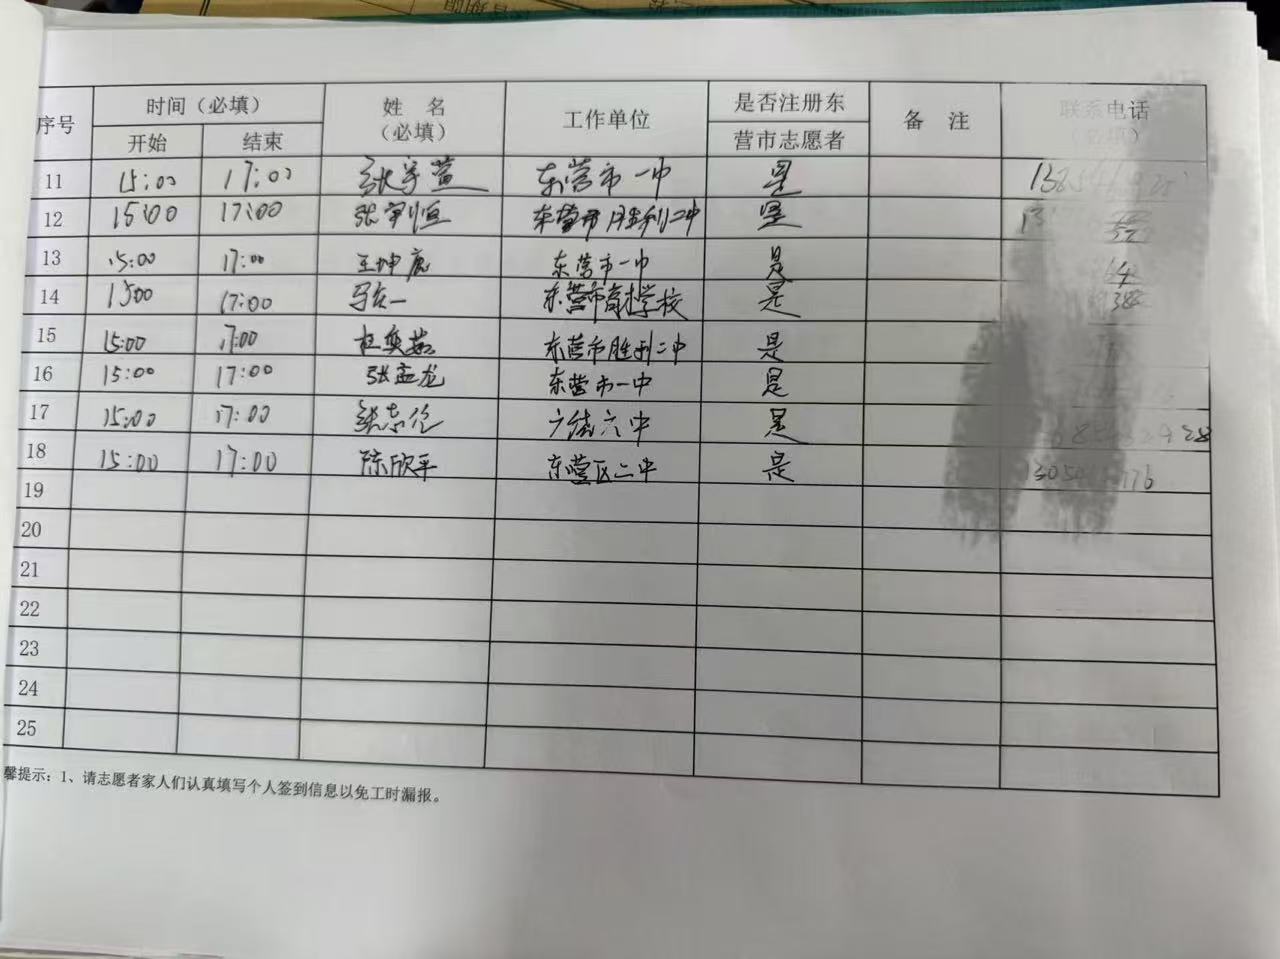 序号 时间（必填） 姓 名（必填） 工作单位 是否注册东营市志愿者 备 注 联系电话（必填）
开始 结束
11 15:00 17:00 张宇萱 东营市一中 是
12 15:00 17:00 张宇恒 东营市胜利二中 是
13 15:00 17:00 王坤 东营市一中 是
14 1500 17:00 马 一 东营市 学校 是
15 15:00 17:00 杜奕 东营市胜利二中 是
16 15:00 17:00 张孟龙 东营市一中 是
17 15:00 17:00 张志伦 六中 是
18 15:00 17:00 陈欣平 东营区二中 是
19
20
21
22
23
24
25
馨提示：1、请志愿者家人们认真填写个人签到信息以免工时漏报。